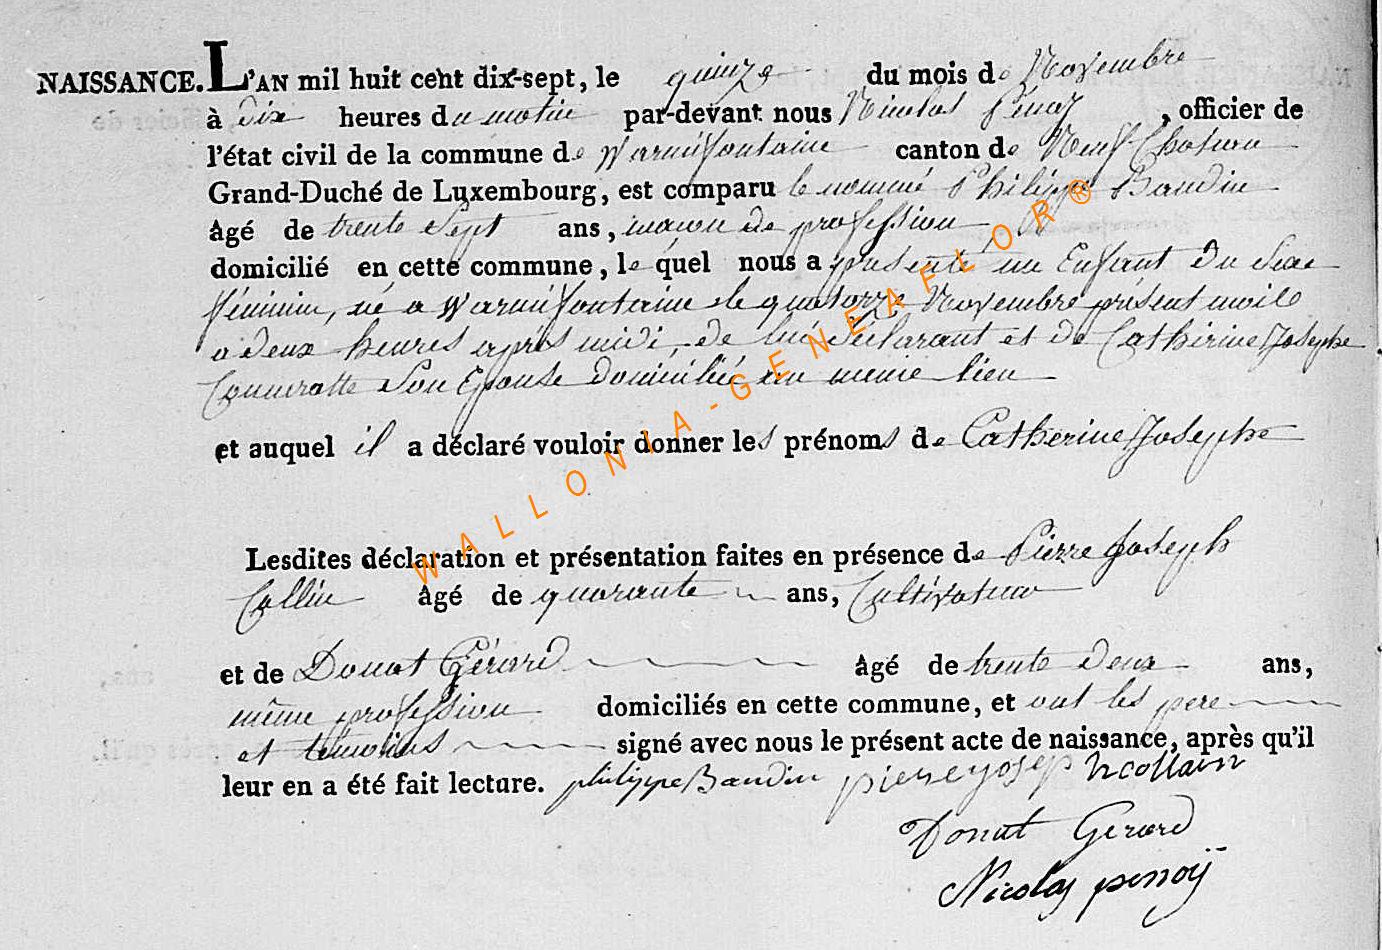 NAISSANCE. L'AN mil huit cent dix-sept, le quinze du mois de Novembre
à dix heures du matin par-devant nous Nicolas Pénoy, officier de
l'état civil de la commune de Warmifontaine canton de Neuf-Chateau
Grand-Duché de Luxembourg, est comparu le nommé Philippe Baudin
âgé de trente sept ans, maçon de profession
domicilié en cette commune, lequel nous a présenté un Enfant Du Sexe
féminin, né a Warmifontaine le quatorze Novembre présent mois
a deux heures après midi, de lui déclarant et de Catherine Josephe
son Epouse Domiciliée au meme lieu
et auquel il a déclaré vouloir donner les prénoms de Catherine Josephe
Lesdites déclaration et présentation faites en présence de Pierre Joseph
Collin âgé de quarante ans, Cultivateur
et de Donat Gérard âgé de trente deux ans,
même profession domiciliés en cette commune, et ont les pere
et témoins signé avec nous le présent acte de naissance, après qu'il
leur en a été fait lecture. philippe Baudin pierre yosep h collain
Donat Gerard
Nicolas penoÿ
WALLONIA-GENEAFLOR®